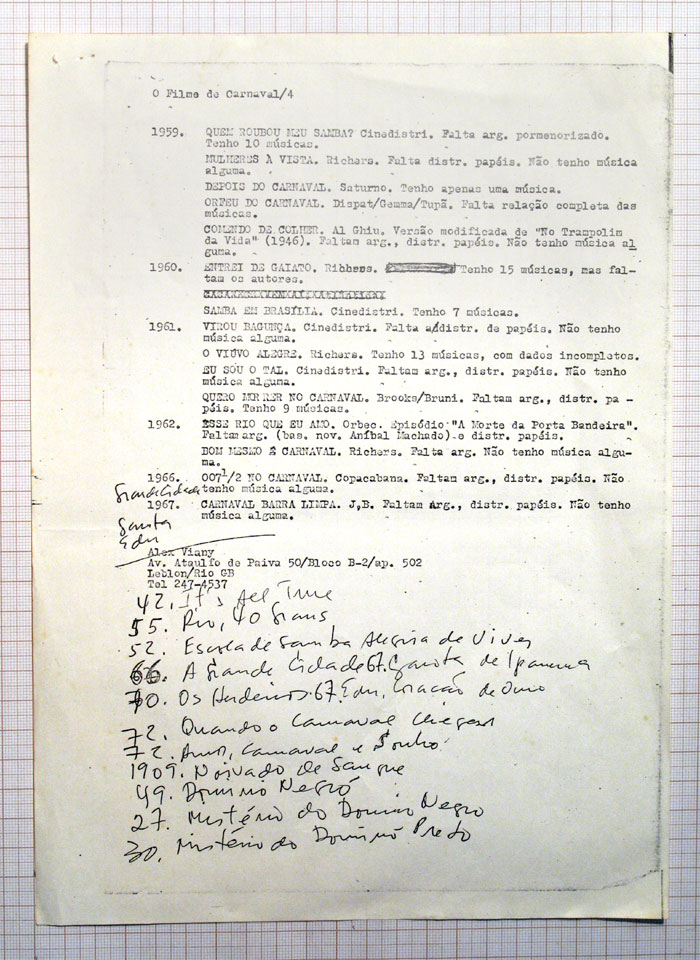 O Filme de Carnaval/4
1959. QUEM ROUBOU MEU SAMBA? Cinedistri. Falta arg. pormenorizado.
Tenho 10 músicas.
MULHERES À VISTA. Richers. Falta distr. papéis. Não tenho música
alguma.
DEPOIS DO CARNAVAL. Saturno. Tenho apenas uma música.
ORFEU DO CARNAVAL. Dispat/Gemma/Tupã. Falta relação completa das
músicas.
COMENDO DE COLHER. Al Ghiu. Versão modificada de "No Trampolim
da Vida" (1946). Faltam arg., distr. papéis. Não tenho música al
guma.
1960. ENTREI DE GAIATO. Ribbens. Tenho 15 músicas, mas fal-
tam os autores.
SAMBA EM BRASÍLIA. Cinedistri. Tenho 7 músicas.
1961. VIROU BAGUNÇA. Cinedistri. Falta a/distr. de papéis. Não tenho
música alguma.
O VIÚVO ALEGRE. Richers. Tenho 13 músicas, com dados incompletos.
EU SOU O TAL. Cinedistri. Faltam arg., distr. papéis. Não tenho
música alguma.
QUERO MORRER NO CARNAVAL. Brooks/Bruni. Faltam arg., distr. pa-
péis. Tenho 9 músicas.
1962. ÊSSE RIO QUE EU AMO. Orbec. Episódio "A Morte da Porta Bandeira".
Faltam arg. (bas. nov. Aníbal Machado) e distr. papéis.
BOM MESMO É CARNAVAL. Richers. Falta arg. Não tenho música algu-
ma.
1966. 007 1/2 NO CARNAVAL. Copacabana. Faltam arg., distr. papéis. Não
Grande Cidade tenho música alguma.
1967. CARNAVAL BARRA LIMPA. J.B. Faltam arg., distr. papéis. Não tenho
música alguma.
Garota
Edu
Alex Viany
Av. Ataulfo de Paiva 50/Bloco B-2/ap. 502
Leblon/Rio GB
Tel 247-4537
42. It's All True
55. Rio, 40 Graus
52. Escola de Samba Alegria de Viver
66. A Grande Cidade 67. Garota de Ipanema
70. Os Herdeiros. 67. Edu, Coração de Ouro
72. Quando o Carnaval Chegar
72. Amor, Carnaval e Sonho
1909. Noivado de Sangue
49. Dominó Negro
27. Mistério do Dominó Negro
30. Mistério do Dominó Preto